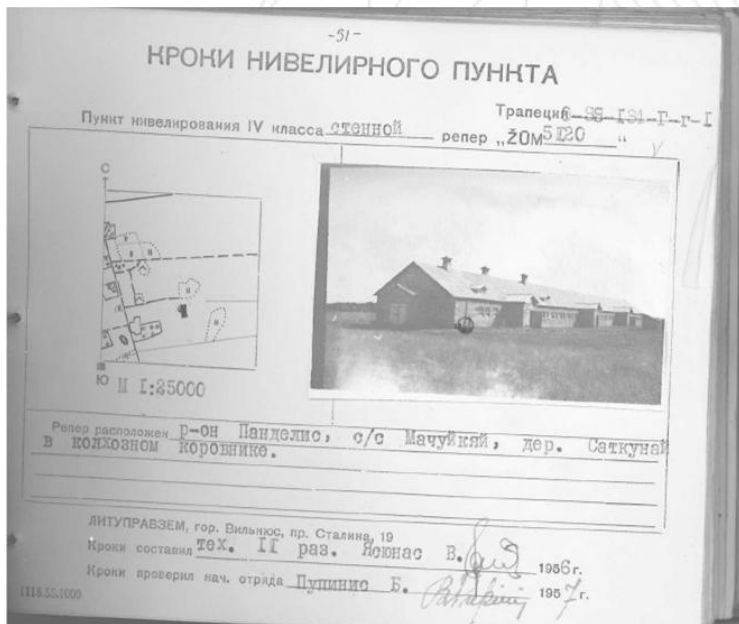 -51-
КРОКИ НИВЕЛИРНОГО ПУНКТА
Трапеция
Пункт нивелирования IV класса стенной репер „ŽŪM 5120 “
С
Ю М I:25000
Репер расположен р-он Панделис, с/с Мачуйкяй, дер. Саткунай
в колхозном коровнике.
ЛИТУПРАВЗЕМ, гор. Вильнюс, пр. Сталина, 19
Кроки составил тех. II раз. Ясюнас В. 1956г.
Кроки проверил нач. отряда Пупинис Б. 1957г.